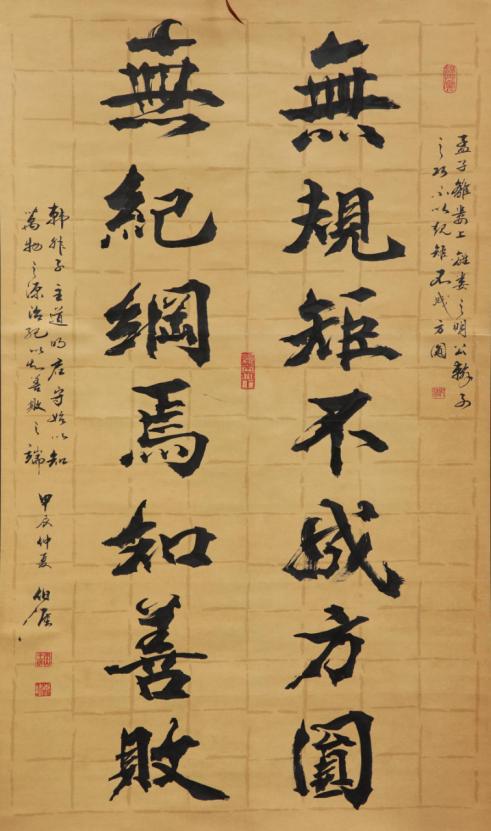 孟子離婁上離婁之明公輸子
之巧不以規矩不成方圓
無規矩不成方圓
無紀綱焉知善敗
韓非子主道明君守始以知
萬物之源治紀以知善敗之端
甲辰仲夏 伯